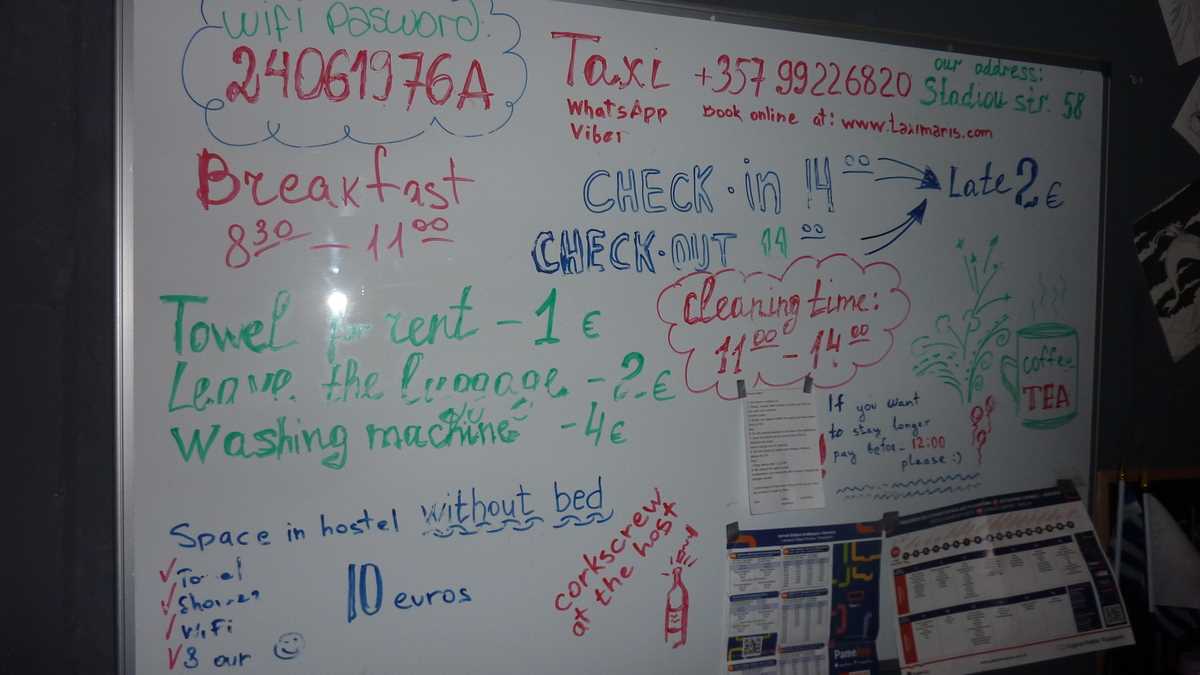 wifi pasword:
24061976A
Taxi +357 99226820
WhatsApp Book online at: www.taximaris.com
Viber
our address:
Stadiou str. 58
Breakfast
8 30 - 11 00
CHECK-in 14 00
CHECK-OUT 11 00
Late 2 €
Towel for rent - 1 €
Leave the luggage - 2 €
Washing machine - 4 €
Cleaning time:
11 00 - 14 00
coffee
TEA
If you want
to stay longer
pay before 12:00
please :)
Space in hostel without bed
10 euros
Towel
Shower
Wifi
3 our
corkscrew
at the host